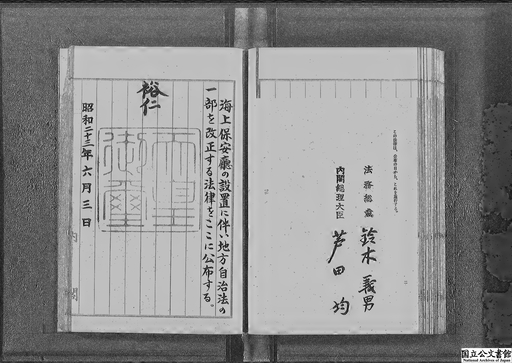 この法律は、公布の日から、これを施行する。
法務総裁 鈴木義男
内閣総理大臣 芦田均
海上保安廳の設置に伴い地方自治法の
一部を改正する法律をここに公布する。
裕仁
天皇御璽
昭和二十三年六月三日
内閣
国立公文書館
National Archives of Japan